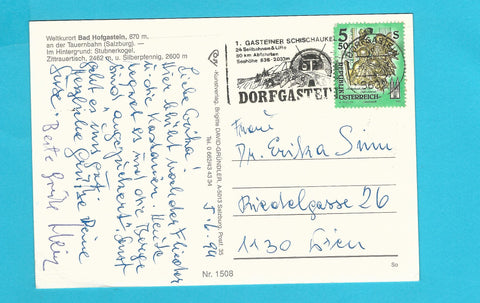 Weltkurort Bad Hofgastein, 870 m,
an der Tauernbahn (Salzburg). -
Im Hintergrund: Stubnerkogel,
Zittrauertisch, 2462 m, u. Silberpfennig, 2600 m
Liebe Erika!
Hier blüht noch der Flieder
u. die Kastanien. Heute
regnet es und die Berge
sind "angezuckert". Sonst
geht es uns gut.
Herzliche Grüße Deine
Beste Grüße
5.6.94
Kunstverlag, Brigitte DAVID-GRÜNDLER, A-5013 Salzburg, Postf. 35
Tel. 0 662/43 43 34
Nr. 1508
1. GASTEINER SCHISCHAUKEL
24 Seilbahnen & Lifte
90 km Abfahrten
Seehöhe 835 - 2033m
DORFGASTEIN
DORFGASTEIN
5 50 S
REPUBLIK
ÖSTERREICH
Frau
Dr. Erika Simm
Riedelgasse 26
1130 Wien
So